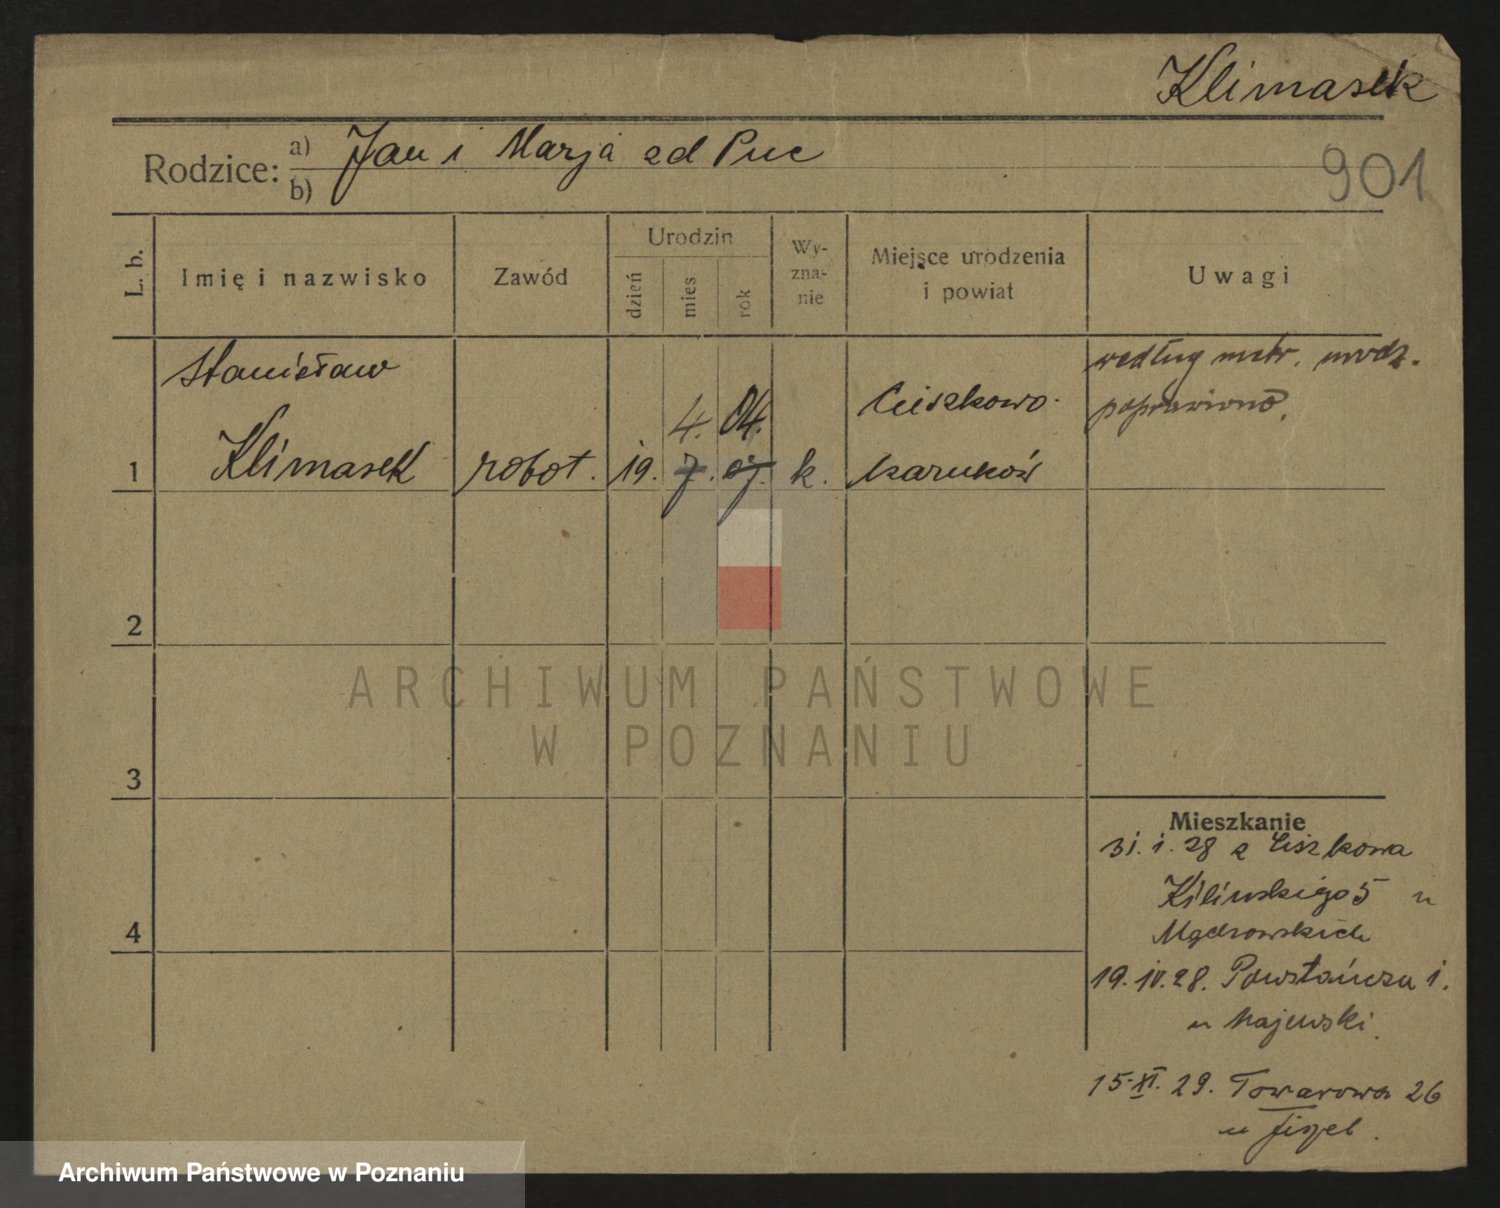 Klimasek
Rodzice: a) Jan i Marja zd Puc
b)
901
L. b.
Imię i nazwisko
Zawód
Urodzin
dzień
mies
rok
Wy-
zna-
nie
Miejsce urodzenia
i powiat
Uwagi
Stanisław
Klimasek
1
robot.
19.
4.
7.
04.
07.
k.
Ciszkowo
według metr. urodz.
poprawiono.
2
3
4
Mieszkanie
31. 1. 28 z Ciszkowa
Kilińskiego 5 u
19. IV. 28. Powstańcza 1.
u Majewski.
15-XI. 29. Towarowa 26
u
ARCHIWUM PAŃSTWOWE
W POZNANIU
Archiwum Państwowe w Poznaniu